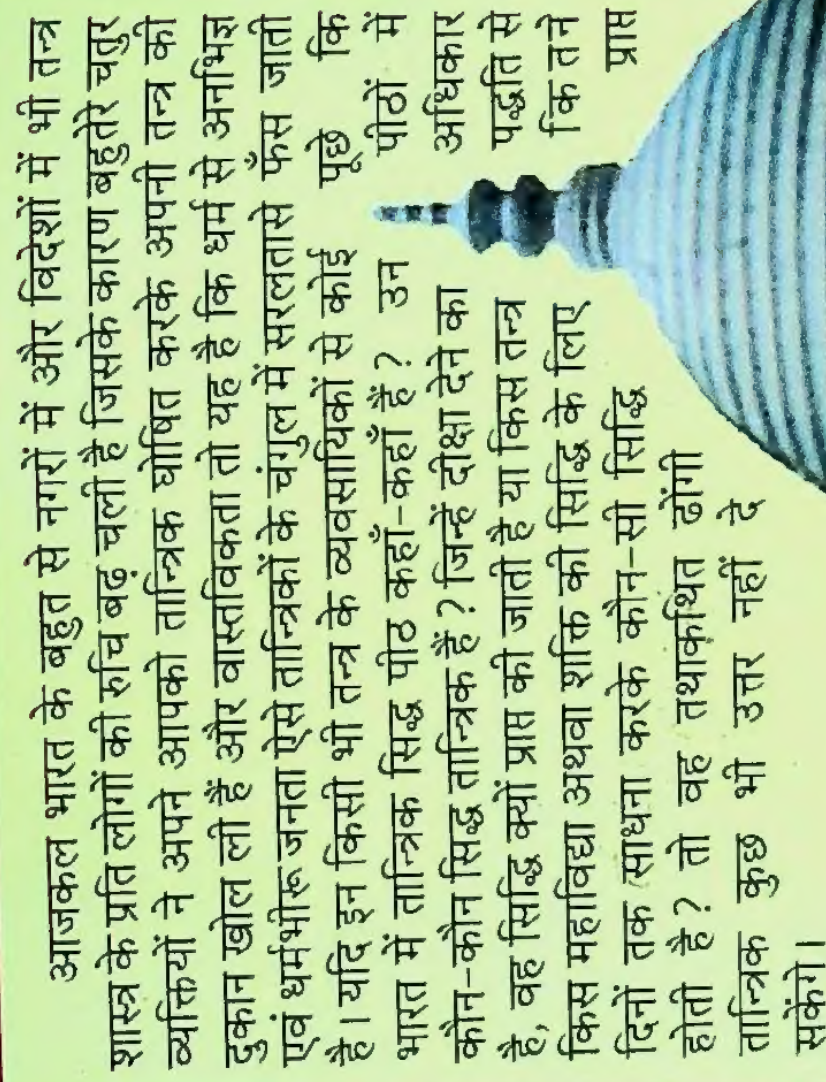 आजकल भारत के बहुत से नगरों में और विदेशों में भी तन्त्र
शास्त्र के प्रति लोगों की रुचि बढ़ चली है जिसके कारण बहुतेरे चतुर
व्यक्तियों ने अपने आपको तान्त्रिक घोषित करके अपनी तन्त्र की
दुकान खोल ली हैं और वास्तविकता तो यह है कि धर्म से अनभिज्ञ
एवं धर्मभीरू जनता ऐसे तान्त्रिकों के चंगुल में सरलतासे फँस जाती
है। यदि इन किसी भी तन्त्र के व्यवसायिकों से कोई पूछे कि
भारत में तान्त्रिक सिद्ध पीठ कहाँ-कहाँ हैं? उन पीठों में
कौन-कौन सिद्ध तान्त्रिक हैं? जिन्हें दीक्षा देने का अधिकार
है, वह सिद्धि क्यों प्राप्त की जाती है या किस तन्त्र पद्धति से
किस महाविद्या अथवा शक्ति की सिद्धि के लिए कितने
दिनों तक साधना करके कौन-सी सिद्धि प्राप्त
होती है? तो वह तथाकथित ढोंगी
तान्त्रिक कुछ भी उत्तर नहीं दे
सकेंगे।